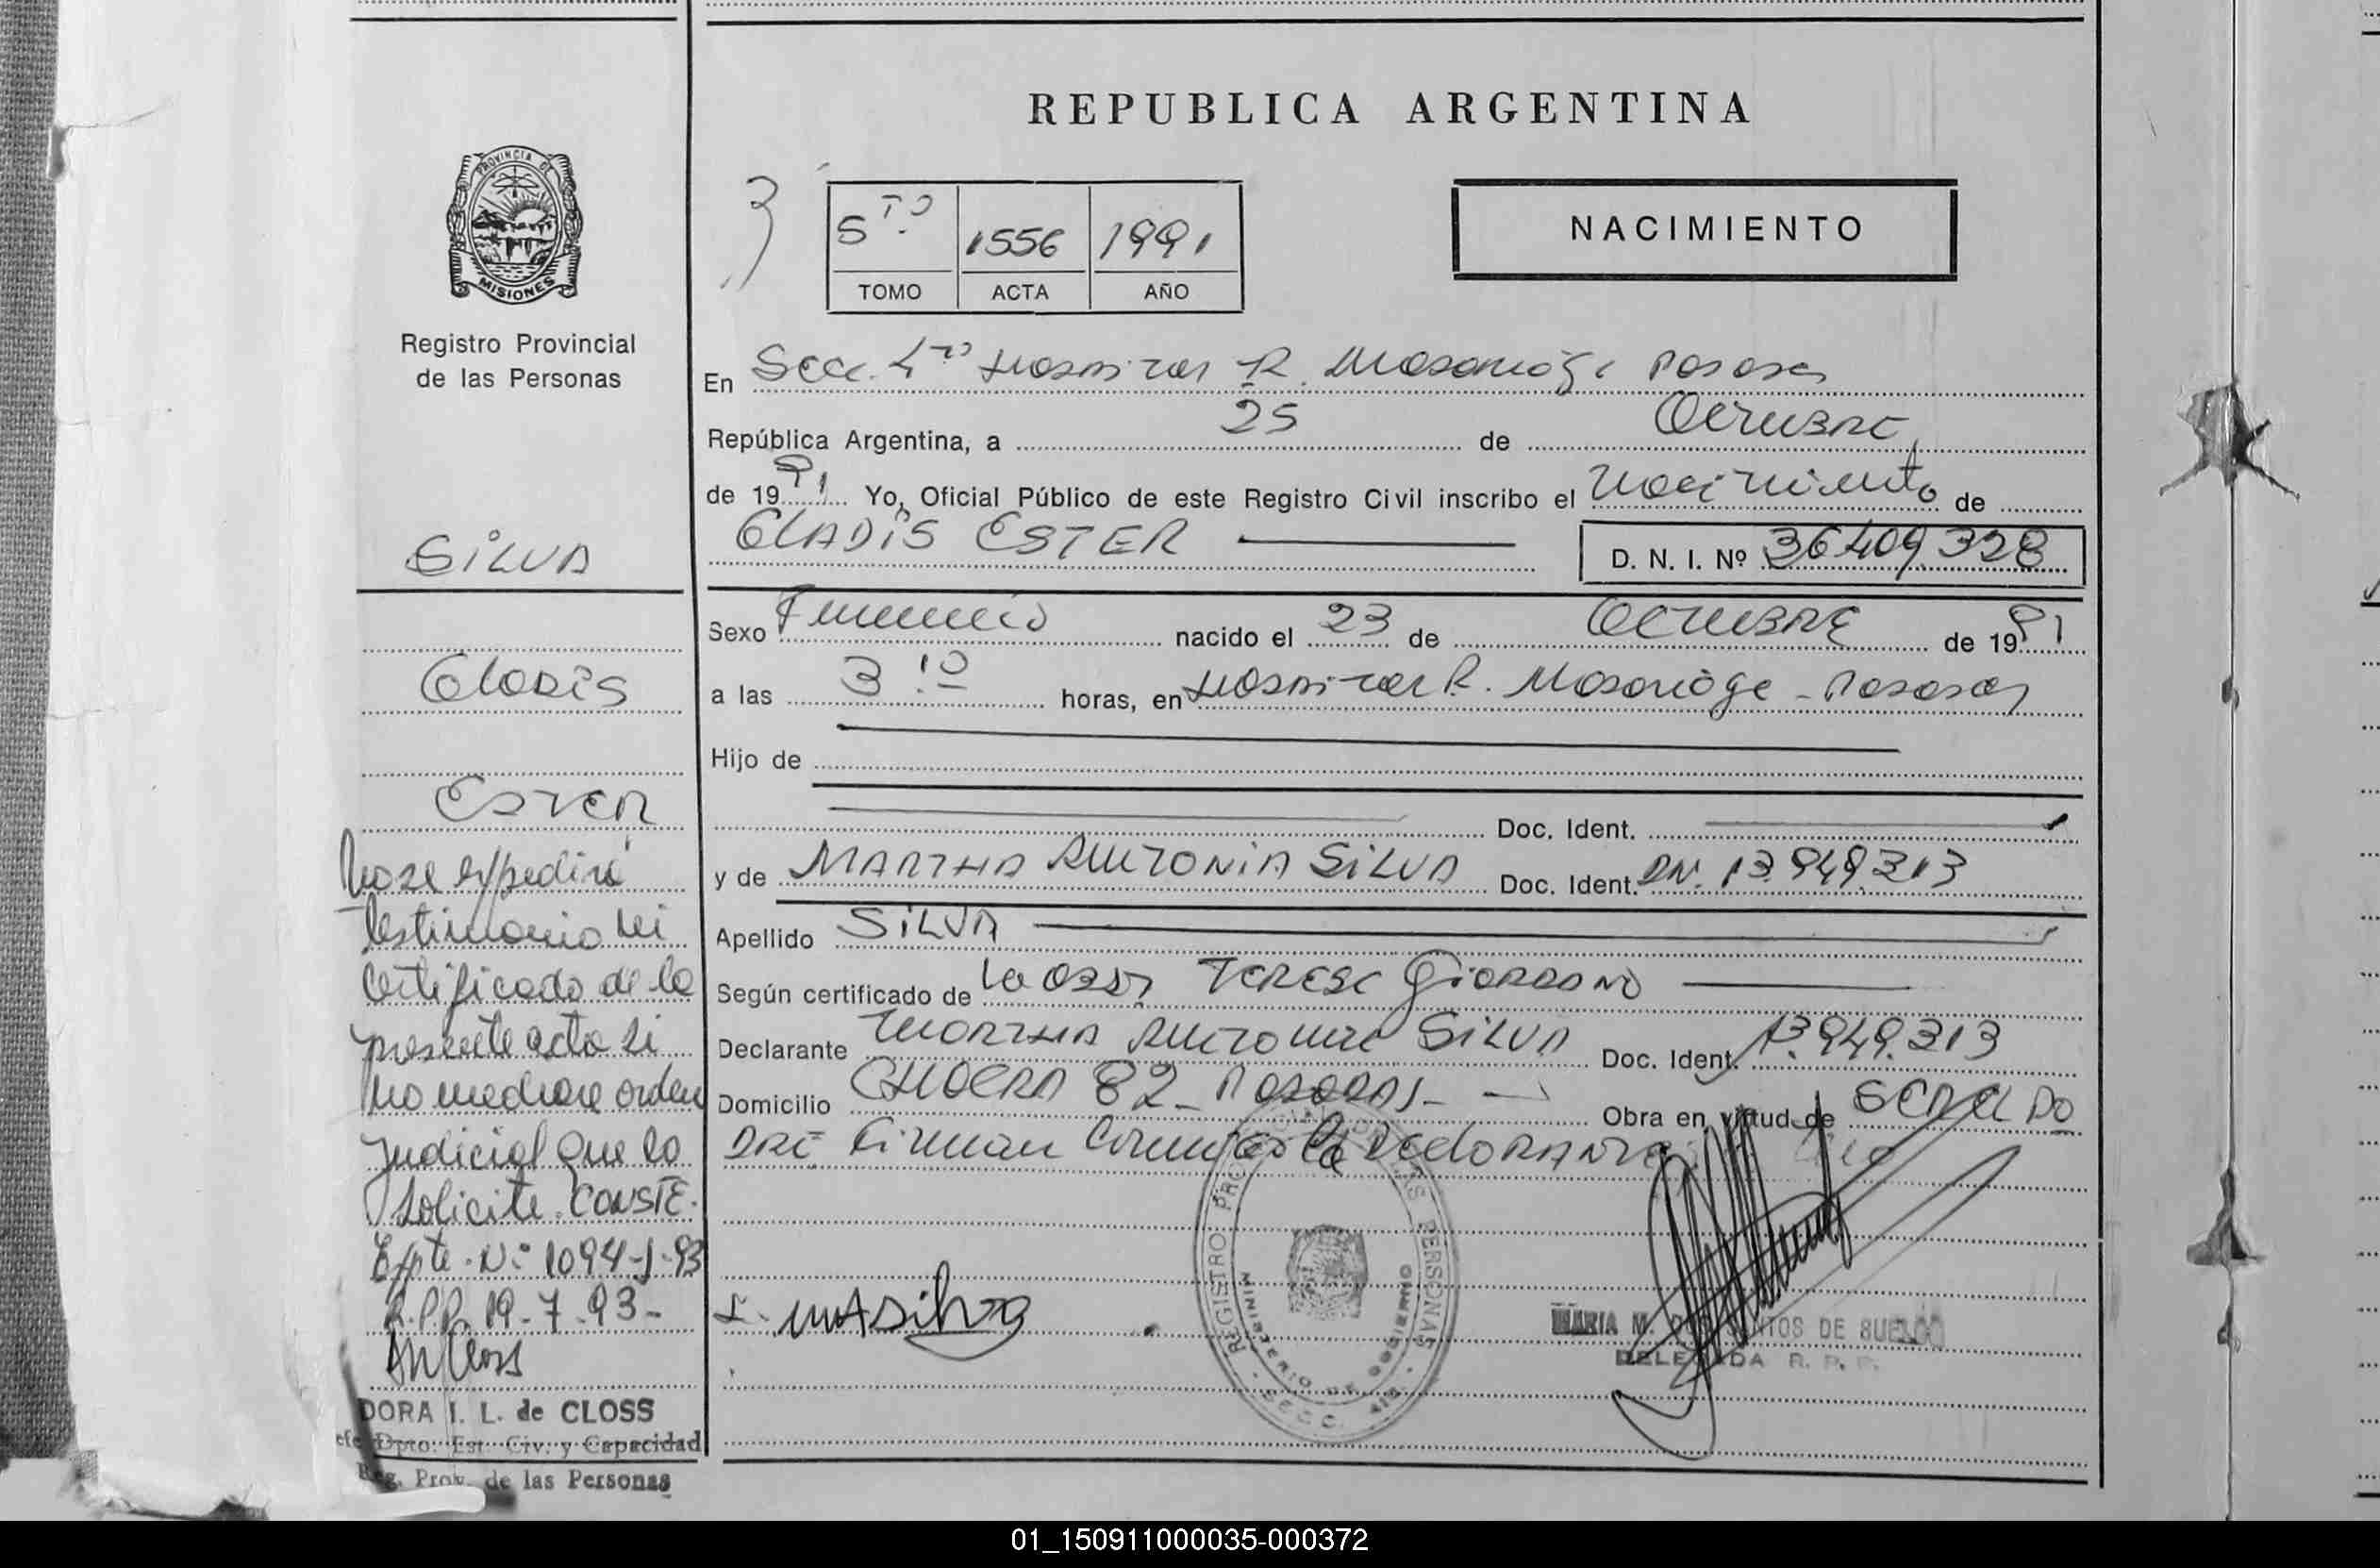 REPUBLICA ARGENTINA
PROVINCIA DE
MISIONES
Registro Provincial
de las Personas
5to.
1556
1991
TOMO
ACTA
AÑO
NACIMIENTO
En Secc. 4ta Hospital R. Madariaga Posadas
República Argentina, a 25 de Octubre
de 1991 Yo, Oficial Público de este Registro Civil inscribo el Nacimiento de
GLADIS ESTER
D. N. I. Nº 36409.328
Sexo Femenino nacido el 23 de OCTUBRE de 1991
a las 3.10 horas, en Hospital R. Madariaga - Posadas
Hijo de
Doc. Ident.
y de MARTHA ANTONIA SILVA Doc. Ident. DN. 13.949.313
Apellido SILVA
Según certificado de la Obst. TERESA GIORDANO
Declarante MARTHA ANTONIA SILVA Doc. Ident. 13.949.313
Domicilio 82 - POSADAS -
Obra en virtud de
Firman la DECLARANTE
REGISTRO PROVINCIAL DE LAS PERSONAS
MINISTERIO DE GOBIERNO
SECC. 4ta
MARIA M. DOS SANTOS DE SUELDO
DELEGADA R. P. P.
SILVA
Gladis
ESTER
No se expedirá
testimonio ni
certificado de la
presente acta si
no mediare orden
judicial que lo
solicite. CONSTE.
Expte. Nº 1094-J-93
R.P.P. 19-7-93-
DORA I. L. de CLOSS
Dpto. Est. Civ. y Capacidad
Reg. Prov. de las Personas
01_150911000035-000372